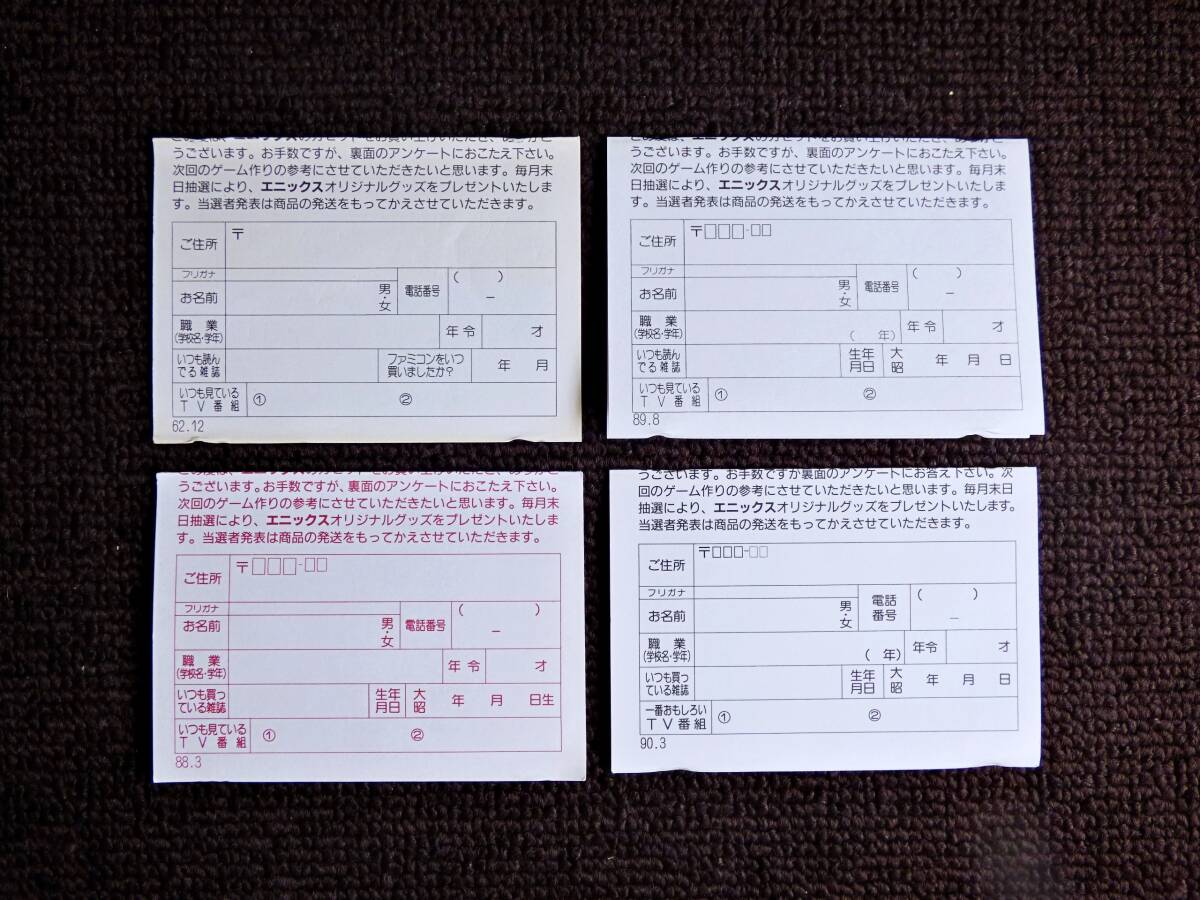 この度は、エニックスのカセットをお買い上げいただき、ありがと
うございます。お手数ですが、裏面のアンケートにおこたえ下さい。
次回のゲーム作りの参考にさせていただきたいと思います。毎月末
日抽選により、エニックスオリジナルグッズをプレゼントいたしま
す。当選者発表は商品の発送をもってかえさせていただきます。
ご住所 〒
フリガナ
お名前 男・女 電話番号 ( ) ー
職業 (学校名・学年) 年令 才
いつも読んでる雑誌 ファミコンをいつ買いましたか? 年 月
いつも見ているTV番組 ① ②
62.12
この度は、エニックスのカセットをお買い上げいただき、ありがと
うございます。お手数ですが、裏面のアンケートにおこたえ下さい。
次回のゲーム作りの参考にさせていただきたいと思います。毎月末
日抽選により、エニックスオリジナルグッズをプレゼントいたしま
す。当選者発表は商品の発送をもってかえさせていただきます。
ご住所 〒□□□-□□
フリガナ
お名前 男・女 電話番号 ( ) ー
職業 (学校名・学年) ( 年) 年令 才
いつも読んでる雑誌 生年月日 大昭 年 月 日
いつも見ているTV番組 ① ②
89.8
この度は、エニックスのカセットをお買い上げいただき、ありがと
うございます。お手数ですが、裏面のアンケートにおこたえ下さい。
次回のゲーム作りの参考にさせていただきたいと思います。毎月末
日抽選により、エニックスオリジナルグッズをプレゼントいたしま
す。当選者発表は商品の発送をもってかえさせていただきます。
ご住所 〒□□□-□□
フリガナ
お名前 男・女 電話番号 ( ) ー
職業 (学校名・学年) 年令 才
いつも買っている雑誌 生年月日 大昭 年 月 日生
いつも見ているTV番組 ① ②
88.3
うございます。お手数ですが裏面のアンケートにお答え下さい。次
回のゲーム作りの参考にさせていただきたいと思います。毎月末日
抽選により、エニックスオリジナルグッズをプレゼントいたします。
当選者発表は商品の発送をもってかえさせていただきます。
ご住所 〒□□□-□□
フリガナ
お名前 男・女 電話番号 ( ) ー
職業 (学校名・学年) ( 年) 年令 才
いつも買っている雑誌 生年月日 大昭 年 月 日
一番おもしろいTV番組 ① ②
90.3